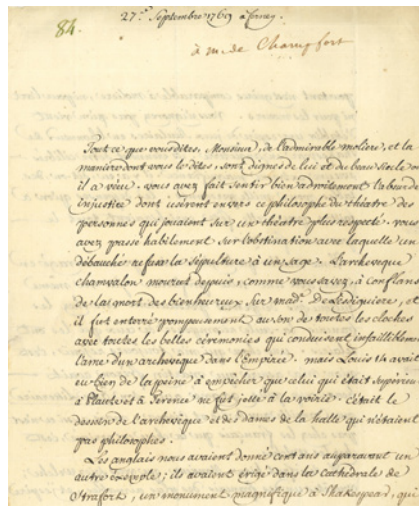 84.
27.e Septembre 1769 à ferney.
à m. de Champfort
Tout ce que vous dites, Monsieur, de l'admirable moliere, et la
maniere dont vous le dites, sont dignes de lui et du beau siecle où
il a vécu. vous avez fait sentir bien adroitement l'absurde
injustice dont usèrent envers ce philosophe du théatre des
personnes qui jouaient sur un théatre plus respecté. vous
avez passé habilement sur l'obstination avec laquelle un
débauché refusa la sépulture à un sage. L'archevêque
chamvalon mourut depuis, comme vous savez, à conflans
de la mort des bienheureux sur mad.e De Lesdiguiere, et
il fut enterré pompeusement au son de toutes les cloches
avec toutes les belles cérémonies qui conduisent infailliblemt
l'ame d'un archevêque dans l'Empirée. mais Louis 14 avait
eu bien de la peine à empêcher que celui qui était supérieur
à Plaute et à Terence ne fut jetté à la voirie. c'était le
dessein de l'archevêque et des dames de la halle qui n'étaient
pas philosophes.
Les anglais nous avaient donné cent ans auparavant un
autre exemple; ils avaient érigé dans la cathédrale de
Strafort, un monument magnifique à Shakespear, qui